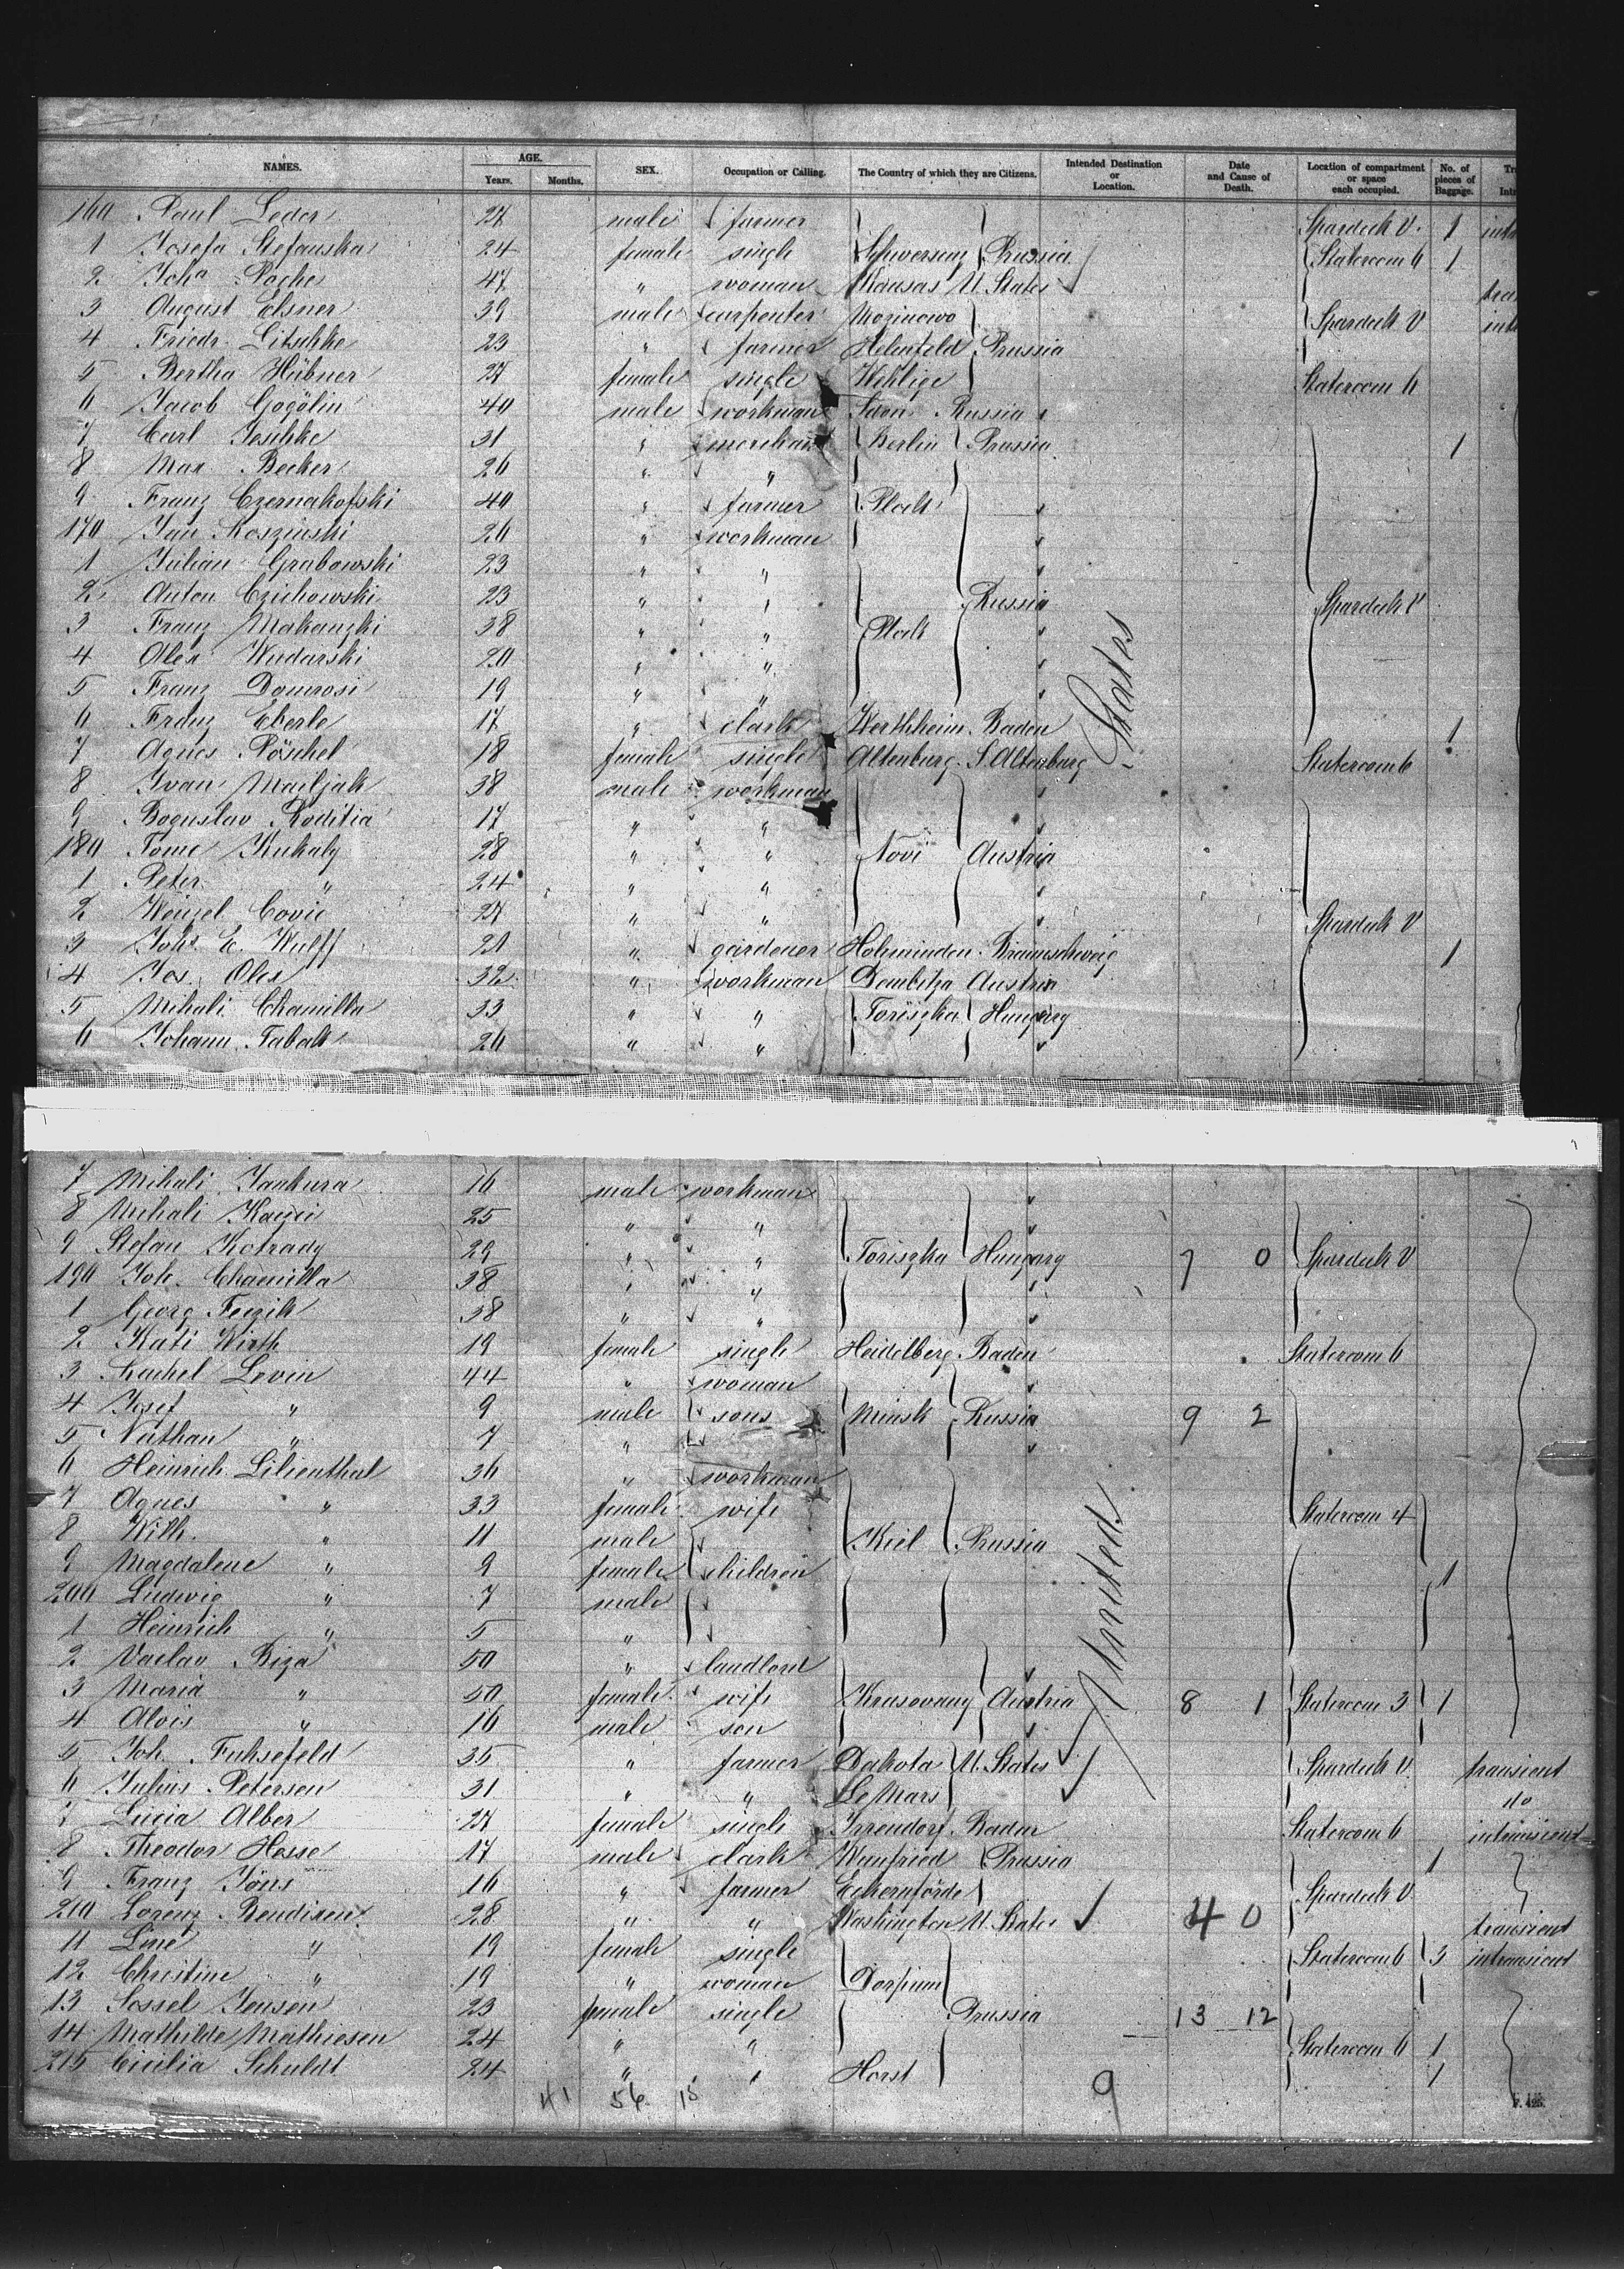 NAMES. AGE. Years. Months. SEX. Occupation or Calling. The Country of which they are Citizens. Intended Destination or Location. Date and Cause of Death. Location of compartment or space each occupied. No. of pieces of Baggage.
160 Paul Leder 27 male farmer Spardeck V. 1
1 Josefa Stefanska 24 female single Schwersenz Prussia Stateroom 6 1
2 Joha Poche 47 " woman Kansas U. States
3 August Elsner 39 male carpenter Mozinowo Spardeck V
4 Friedr. Litschke 23 " farmer Helenfeld Prussia
5 Bertha Hübner 27 female single Wehlige Stateroom 6
6 Jacob Gogolin 40 male workman Russia
7 Carl Jeschke 31 " merchant Berlin Prussia 1
8 Max Becker 26 " "
9 Franz Czernakofski 40 " farmer Plock
170 Jan Koszinski 26 " workman
1 Julian Grabowski 23 " "
2 Anton Czichowski 23 " " Russia Spardeck V
3 Franz Makanzki 38 " " Plock
4 Alex Wudarski 20 " "
5 Franz Domrosi 19 " "
6 Franz Eberle 17 " clark Werthheim Baden 1
7 Agnes Pöschel 18 female single Altenburg S. Altenburg Stateroom 6
8 Ivan Mailjak 38 male workman
9 Boguslav Roditia 17 " "
180 Tome Kukaly 28 " " Novi Austria
1 Peter " 24 " "
2 Wenzel Covic 27 " " Spardeck V
3 Johs. E. Wulff 21 " gardener Holzminden Braunschweig 1
4 Jos. Oles 32 " workman Dombitza Austria
5 Mihali Chamilla 33 " " Toriszka Hungary
6 Johann Tabak 26 " "
States
7 Mihali Jankura 16 male workman
8 Mihali Kawei 25 " "
9 Stefan Kotrady 29 " " Toriszka Hungary 7 0 Spardeck V
190 Joh. Chamilla 38 " "
1 Georg Feczik 38 " "
2 Kati Wirth 19 female single Heidelberg Baden Stateroom 6
3 Rachel Levin 44 " woman
4 Josef " 9 male sons Minsk Russia 9 2
5 Nathan " 7 "
6 Heinrich Lilienthal 36 " workman
7 Agnes " 33 female wife Stateroom 4
8 Wilh. " 11 male Kiel Prussia
9 Magdalene " 9 female children 1
200 Ludwig " 7 male
1 Heinrich " 5 "
United
2 Vaclav Biza 50 " landlord
3 Maria " 50 female wife Krasovany Austria 8 1 Stateroom 3 1
4 Alois " 16 male son
5 Joh. Fuhsefeld 35 " farmer Dakota U. States Spardeck V transient
6 Julius Petersen 31 " " Le Mars do
7 Lucia Alber 27 female single Irrendorf Baden Stateroom 6 intransient
8 Theodor Hesse 17 male clark Wanfried Prussia 1
9 Franz Jöns 16 " farmer Eckernförde Spardeck V
210 Lorenz Bendixen 28 " " Washington U. States 4 0 transient
11 Line " 19 female single Stateroom 6 3 intransient
12 Christine " 19 " woman Dörpum
13 Sossel Jensen 23 female single Prussia 13 12
14 Mathilde Mathiesen 24 " " Stateroom 6 1
215 Cicilia Schuldt 24 " " Horst 1
41 56 15 9
F. 425.